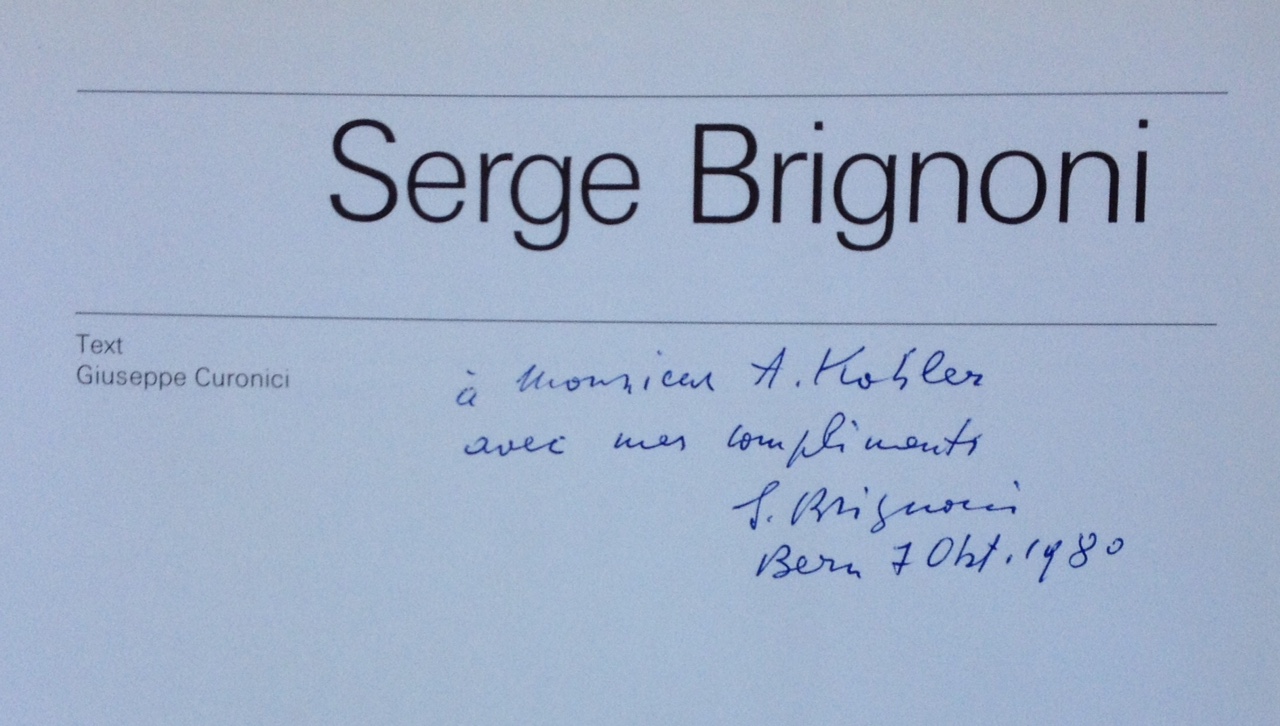 Serge Brignoni
Text
Giuseppe Curonici
à Monsieur A. Kohler
avec mes compliments
S. Brignoni
Bern 7 Okt. 1980